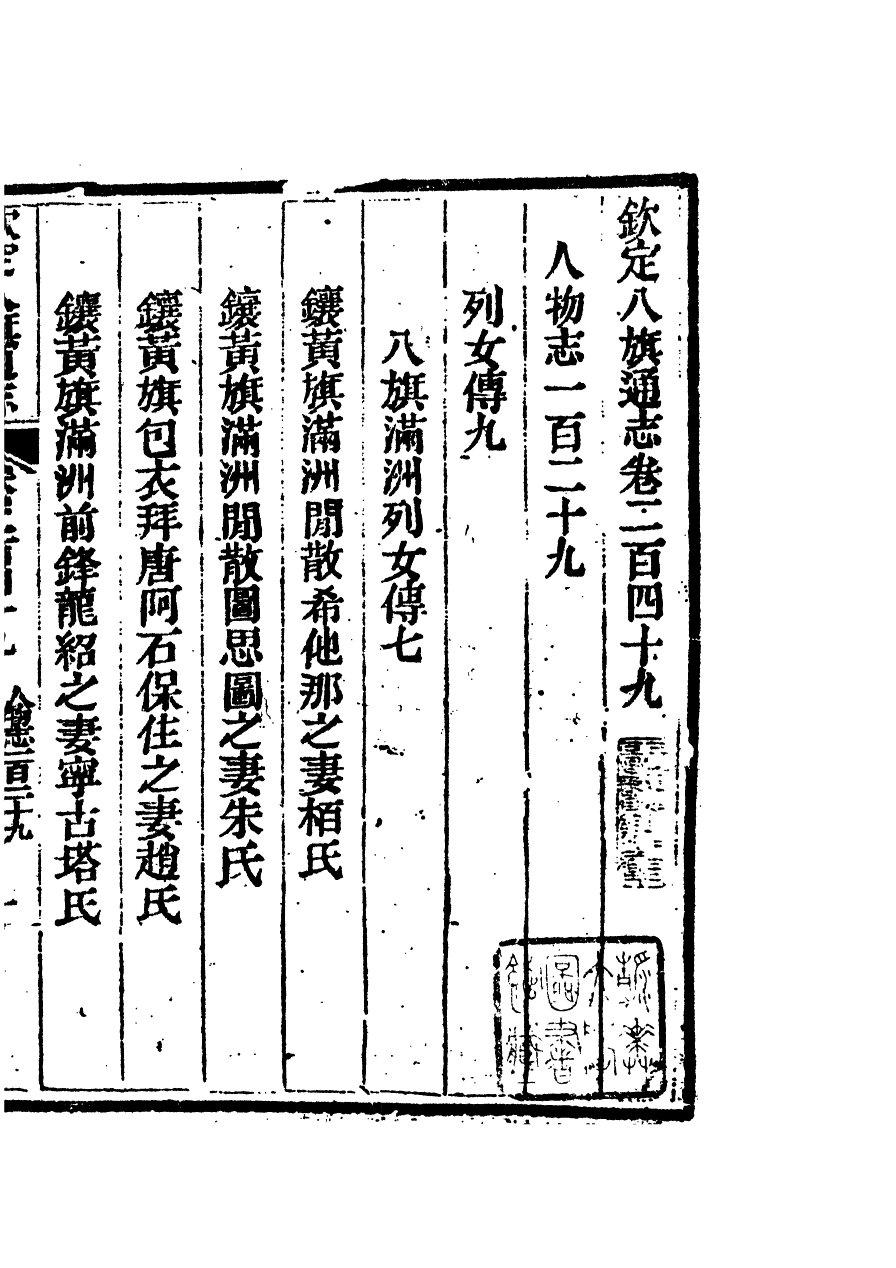 欽定八旗通志卷二百四十九
人物志一百二十九
列女傳九
八旗滿洲列女傳七
鑲黃旗滿洲閒散希他那之妻栢氏
鑲黃旗滿洲閒散圖思圖之妻朱氏
鑲黃旗包衣拜唐阿石保住之妻趙氏
鑲黃旗滿洲前鋒龍紹之妻寧古塔氏
人物志一百二十九